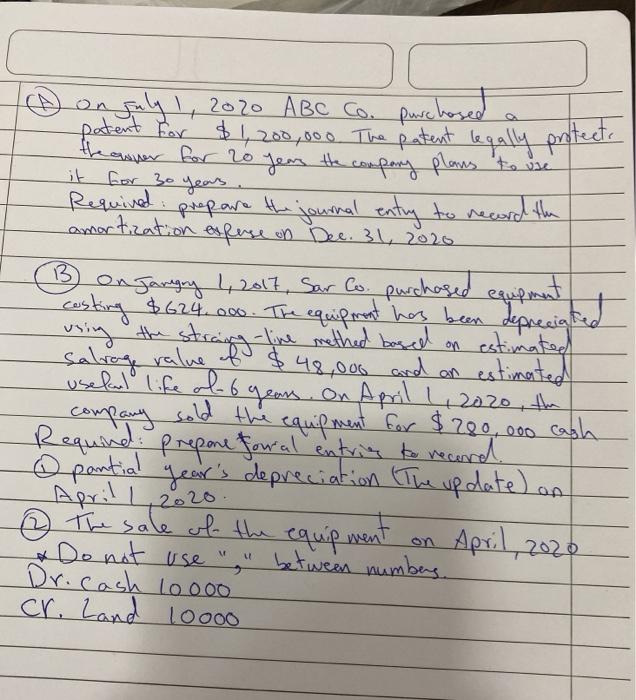 (A) On July 1, 2020 ABC Co. purchased a
patent for $1,200,000 The patent legally protects
the owner for 20 years the company plans to use
it for 30 years.
Required: prepare the journal entry to record the
amortization expense on Dec. 31, 2020
(B) On January 1, 2017, Sar Co. purchased equipment
costing $624,000. The equipment has been depreciated
using the straing-line method based on estimated
salvage value of $48,000 and an estimated
useful life of 6 years. On April 1, 2020, the
company sold the equipment for $280,000 cash
Required: prepare jowral entries to record
(1) partial year's depreciation (The update) on
April 1, 2020.
(2) The sale of the equipment on April, 2020
* Do not use "," between numbers.
Dr. Cash 10000
Cr. Land 10000